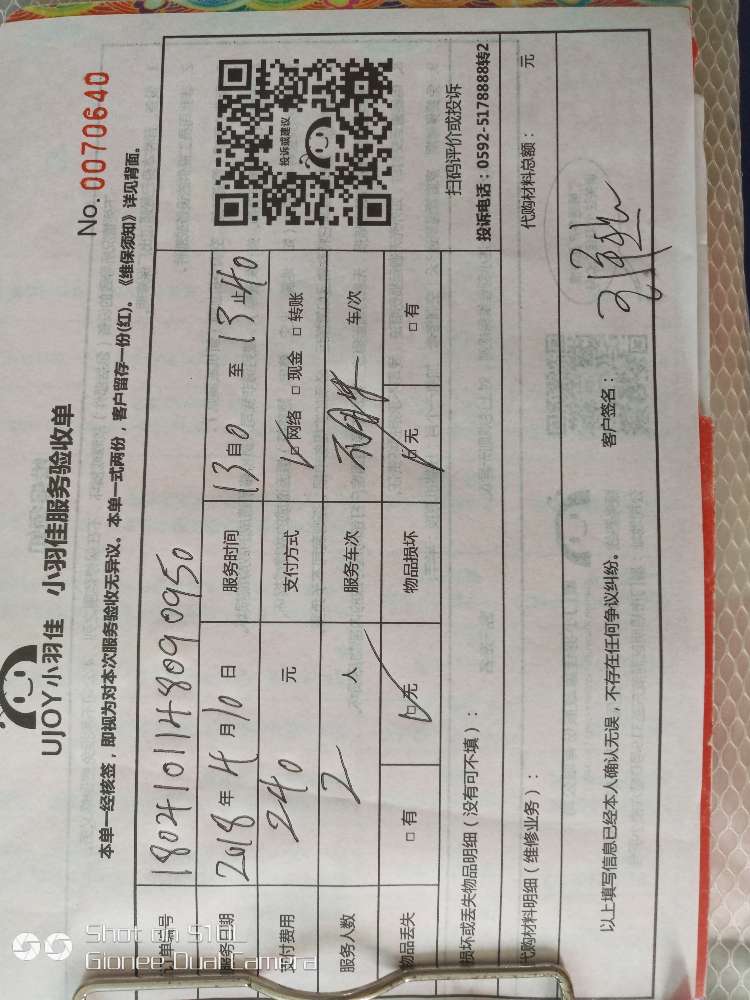 UJOY小羽佳 小羽佳服务验收单
No. 0070640
本单一经核签，即视为对本次服务验收无异议。本单一式两份，客户留存一份(红)。《维保须知》详见背面。
订单编号 1804101148090950
服务日期 2018年4月10日 服务时间 13自0 至 13止40
支付费用 240 元 支付方式 ☑网络 □现金 □转账
服务人数 2 人 服务车次 车/次
物品丢失 □有 ☑无 物品损坏 ☑无 □有
投诉或建议
扫码评价或投诉
投诉电话：0592-5178888转2
损坏或丢失物品明细（没有可不填）：
代购材料明细（维修业务）： 代购材料总额： 元
以上填写信息已经本人确认无误，不存在任何争议纠纷。 客户签名：
Shot on S10
Gionee Dual Camera